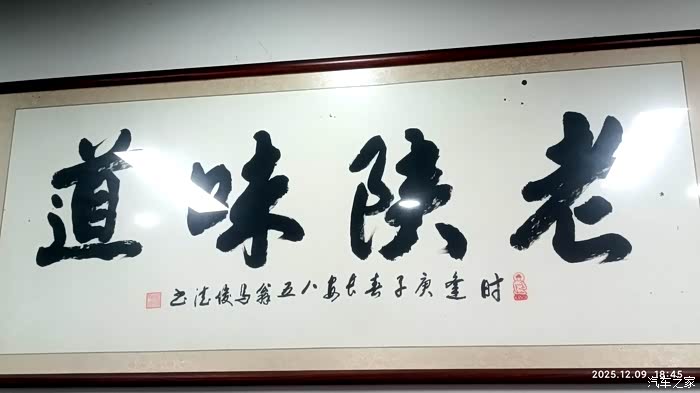 老陕味道
时逢庚子春长安八五翁马俊德书
2025.12.09 18:45
汽车之家